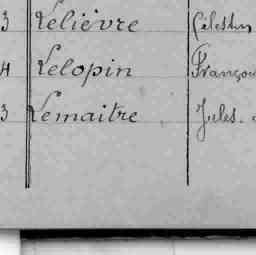 3 Lelièvre Célestin
4 Lelopin François
3 Lemaitre Jules.